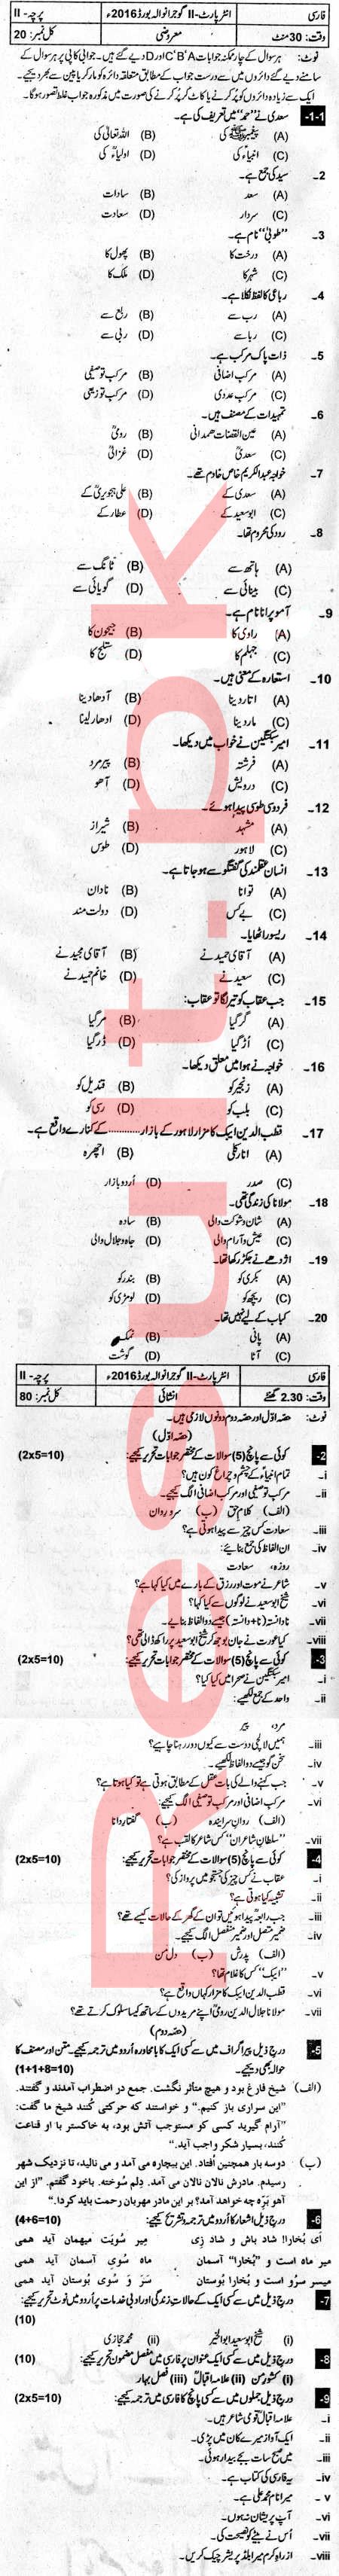 فارسی انٹر پارٹ-II گوجرانوالہ بورڈ 2016ء پرچہ-II
وقت: 30 منٹ معروضی کل نمبر: 20
نوٹ: ہر سوال کے چار ممکنہ جوابات A، B، C اور D دیے گئے ہیں۔ جوابی کاپی پر ہر سوال کے
سامنے دیے گئے دائروں میں سے درست جواب کے مطابق متعلقہ دائرہ کو مارکر یا پین سے بھر دیجیے۔
ایک سے زیادہ دائروں کو پُر کرنے یا کاٹ کر پُر کرنے کی صورت میں مذکورہ جواب غلط تصور ہوگا۔
1-1- سعدی نے "حمد" میں تعریف کی ہے۔
(A) پیغمبرﷺ کی (B) اللہ تعالیٰ کی
(C) انبیاءؑ کی (D) اولیاءؒ کی
2- سید کی جمع ہے۔
(A) سعد (B) سادات
(C) سردار (D) سعادت
3- "طوبیٰ" نام ہے۔
(A) درخت کا (B) پھول کا
(C) شہر کا (D) ملک کا
4- رباعی کا لفظ نکلا ہے۔
(A) رب سے (B) ربع سے
(C) ربا سے (D) ربی سے
5- ذات پاک مرکب ہے۔
(A) مرکب اضافی (B) مرکب توصیفی
(C) مرکب عددی (D) مرکب توزیعی
6- تمہیدات کے مصنف ہیں۔
(A) عین القضات ھمدانی (B) رومیؒ
(C) سعدیؒ (D) غزالیؒ
7- خواجہ عبدالکریم خاص خادم تھے۔
(A) سعدی کے (B) علی ہجویریؒ کے
(C) ابوسعید کے (D) عطار کے
8- رودکی محروم تھا۔
(A) ہاتھ سے (B) ٹانگ سے
(C) بینائی سے (D) گویائی سے
9- آمو پرانا نام ہے۔
(A) راوی کا (B) جیحون کا
(C) جہلم کا (D) ستلج کا
10- استعارہ کے معنی ہیں۔
(A) اتار دینا (B) آدھا دینا
(C) مار دینا (D) ادھار لینا
11- امیر سبکتگین نے خواب میں دیکھا۔
(A) فرشتہ (B) پیر مرد
(C) درویش (D) آھو
12- فردوسی طوسی پیدا ہوئے۔
(A) مشہد (B) شیراز
(C) لاہور (D) طوس
13- انسان عقلمند کی گفتگو سے ہو جاتا ہے۔
(A) توانا (B) نادان
(C) بے کس (D) دولت مند
14- ریسور اٹھایا۔
(A) آقای حمید نے (B) آقای مجید نے
(C) سعید نے (D) خانم حمید نے
15- جب عقاب کو تیر لگا تو عقاب:
(A) گر گیا (B) مر گیا
(C) اُڑ گیا (D) ڈر گیا
16- خواجہ نے ہوا میں معلق دیکھا۔
(A) زنجیر کو (B) قندیل کو
(C) بلب کو (D) رسی کو
17- قطب الدین ایبک کا مزار لاہور کے بازار ............ کے کنارے واقع ہے۔
(A) انارکلی (B) اچھرہ
(C) صدر (D) اُردو بازار
18- مولانا کی زندگی تھی۔
(A) شان و شوکت والی (B) سادہ
(C) عیش و آرام والی (D) جاہ و جلال والی
19- اژدھے نے جکڑ رکھا تھا۔
(A) بکری کو (B) بندر کو
(C) ریچھ کو (D) لومڑی کو
20- کباب کے لیے نہیں تھا۔
(A) پانی (B) نمک
(C) آٹا (D) گوشت
فارسی انٹر پارٹ-II گوجرانوالہ بورڈ 2016ء پرچہ-II
وقت: 2.30 گھنٹے انشائی کل نمبر: 80
نوٹ: حصہ اول اور حصہ دوم دونوں لازمی ہیں۔
(حصہ اوّل)
2- کوئی سے پانچ (5) سوالات کے مختصر جوابات تحریر کیجیے: (2x5=10)
i- تمام انبیاءؑ کے چشم و چراغ کون ہیں؟
ii- مرکب توصیفی اور مرکب اضافی الگ کیجیے۔
(الف) کلام حق (ب) سرو روان
iii- سعادت کس چیز سے پیدا ہوتی ہے؟
iv- ان الفاظ کی جمع بنائیے:
روزہ، سعادت
v- شاعر نے موت اور رزق کے بارے میں کیا کہا ہے؟
vi- شیخ ابوسعید نے لوگوں سے کیا کہا؟
vii- نادانستہ (نا+دانستہ) جیسے دو الفاظ بنایے۔
viii- کیا عورت نے جان بوجھ کر شیخ ابوسعید پر راکھ ڈالی تھی؟
3- کوئی سے پانچ (5) سوالات کے مختصر جوابات تحریر کیجیے: (2x5=10)
i- امیر سبکتگین نے صحرا میں کیا کیا؟
ii- واحد کے جمع لکھیے:
مرد، پیر
iii- ہمیں لالچی دوست سے کیوں دور رہنا چاہیے؟
iv- سخن گو جیسے دو الفاظ لکھیے۔
v- جب کہنے والے کی بات عقل کے مطابق ہوتی ہے تو کیا ہوتا ہے؟
vi- مرکب اضافی اور مرکب توصیفی الگ کیجیے:
(الف) روانِ سرایندہ (ب) گفتار دانا
vii- "سلطانِ شاعران" کس شاعر کا لقب ہے؟
4- کوئی سے پانچ (5) سوالات کے مختصر جوابات تحریر کیجیے: (2x5=10)
i- عقاب نے کس چیز کی جستجو میں پرواز کی؟
ii- تشبیہ کیا ہوتی ہے؟
iii- جب رابعہ پیدا ہوئیں تو ان کے گھر کے حالات کیسے تھے؟
iv- ضمیر متصل اور ضمیر منفصل الگ کیجیے۔
(الف) پدرش (ب) دل من
v- "ایبک" کس کا غلام تھا؟
vi- قطب الدین ایبک کا مزار کہاں واقع ہے؟
vii- مولانا جلال الدین رومیؒ اپنے مریدوں کے ساتھ کیسا سلوک کرتے تھے؟
(حصہ دوم)
5- درج ذیل پیراگراف میں سے کسی ایک کا بامحاورہ اُردو میں ترجمہ کیجیے۔ متن اور مصنف کا
حوالہ بھی دیجیے۔ (1+1+8=10)
(الف) شیخ فارغ بود و هیچ متأثر نگشت. جمع در اضطراب آمدند و گفتند.
"این سرای باز کنیم." و خواستند که حرکتی کُنند شیخ ما گفت:
"آرام گیرید کسی کو مستوجب آتش بود، به خاکستر با او قناعت
کُنند، بسیار شکر واجب آید."
(ب) دوسه بار همچنین اُفتاد. این بیچاره می آمد و می نالید، تا نزدیک شهر
رسیدم. مادرش نالان نالان می آمد. دِلم سُوخته. باخود گفتم. "از این
آهو بَرّه چه خواهد آمد؟ بر این مادرِ مهربان رحمت باید کرد!."
6- درج ذیل اشعار کا اُردو میں ترجمہ و تشریح کیجیے: (4+6=10)
اَی بُخارا! شاد باش و شاد زِی میر سُویَت میهمان آید همی
میر ماه است و "بُخارا" آسمان ماه سُوی آسمان آید همی
میسر سرُو است و بُخارا بُوستان سَرَ وِ سُوی بُوستان آید همی
7- درج ذیل میں سے کسی ایک کے حالاتِ زندگی اور ادبی خدمات پر اُردو میں نوٹ تحریر کیجیے:
(10)
(i) شیخ ابوسعید ابوالخیر (ii) محمد حجازی
8- درج ذیل میں سے کسی ایک عنوان پر فارسی میں مفصل مضمون تحریر کیجیے: (10)
(i) کشور من (ii) علامہ اقبالؒ (iii) فصل بہار
9- درج ذیل جملوں میں سے کسی پانچ کا فارسی میں ترجمہ کیجیے: (2x5=10)
i- علامہ اقبالؒ قومی شاعر ہیں۔
ii- ایک آواز میرے کان میں پڑی۔
iii- میں صبح سات بجے بیدار ہوئی۔
iv- یہ فارسی کی کتاب ہے۔
v- میرا نام محمد علی ہے۔
vi- آپ پریشان نہ ہوں۔
vii- اُس نے بیٹے کو نصیحت کی۔
viii- از راہ کرم میرا بلڈ پریشر چیک کریں۔
Result-pk